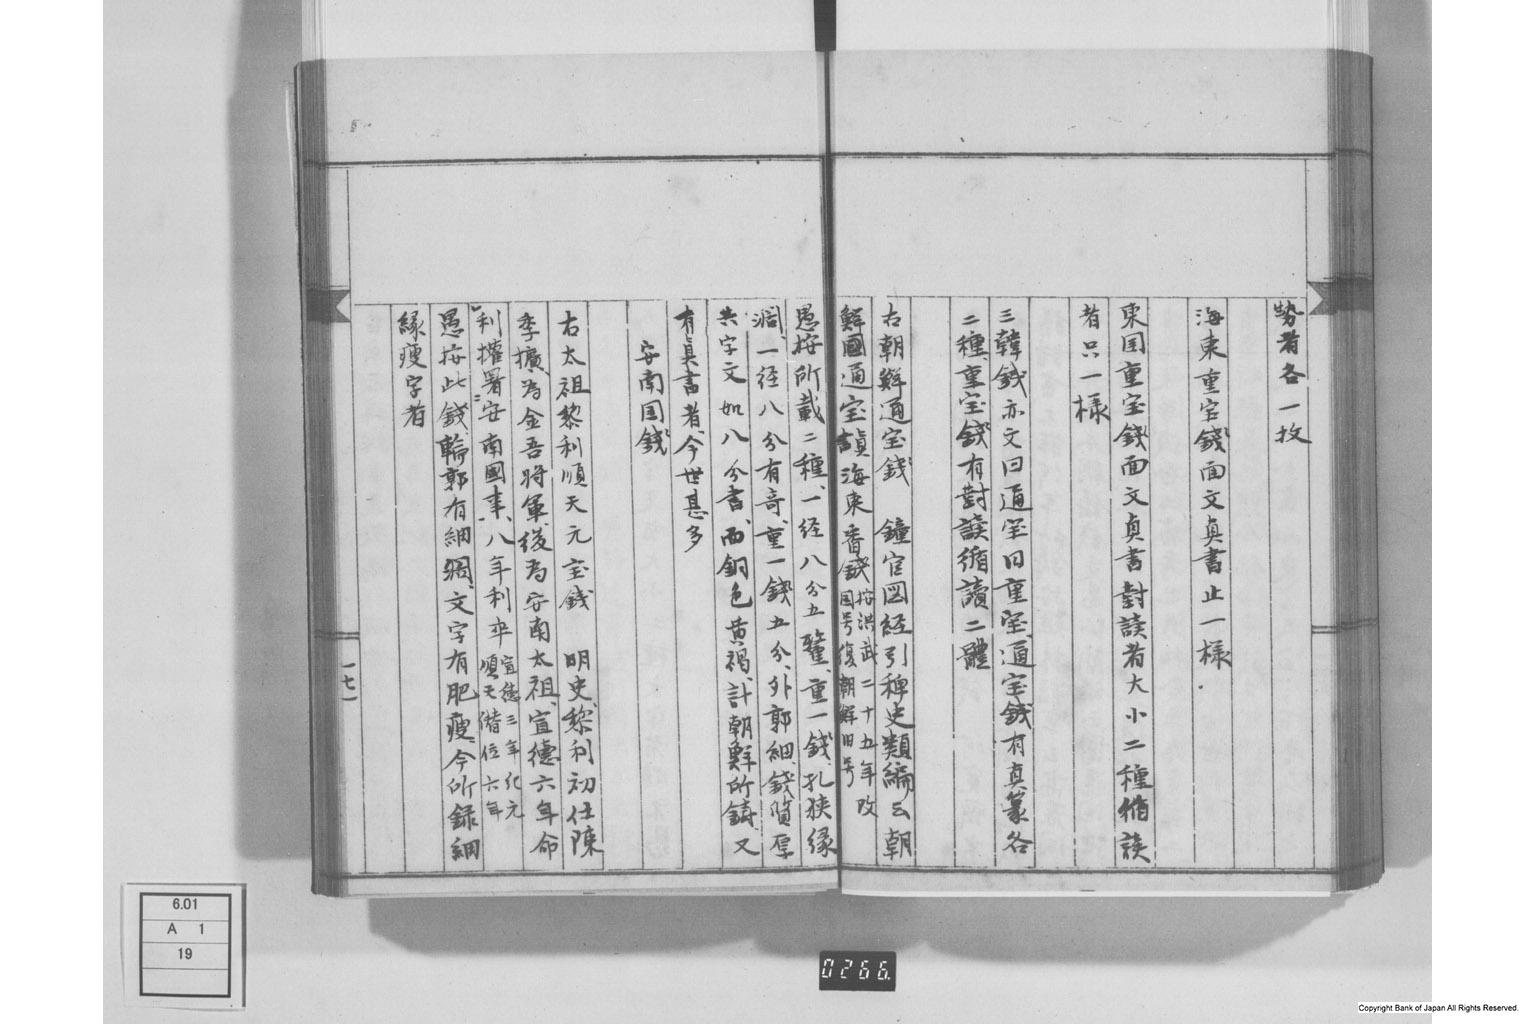 勢者各一枚
海東重宝錢面文真書止一様
東国重宝錢面文真書對読者大小二種循読
者只一様
三韓錢亦文曰通宝曰重宝通宝錢有真篆各
二種重宝錢有對読循讀二體
右朝鮮通宝錢 鐘官図経引稗史類編云朝
鮮國通宝 海東番錢 按洪武二十五年改
国号復朝鮮旧号
愚按所載二種、一径八分五釐、重一錢、孔狭縁
濶、一径八分有奇、重一錢五分、外郭細、錢質厚
共字文如八分書、而銅色黄褐、計朝鮮所鋳、又
有真書者、今世甚多
安南国錢
右太祖黎利順天元宝錢 明史、黎利初仕陳
季擴為金吾将軍後為安南太祖、宣徳六年命
利権署安南國事、八年利卒 宣徳三年紀元
順天僣位六年
愚按此錢輪郭有細濶、文字有肥瘦、今所録細
縁瘦字者
一七一
6.01
A 1
19
0266.
Copyright Bank of Japan All Rights Reserved.